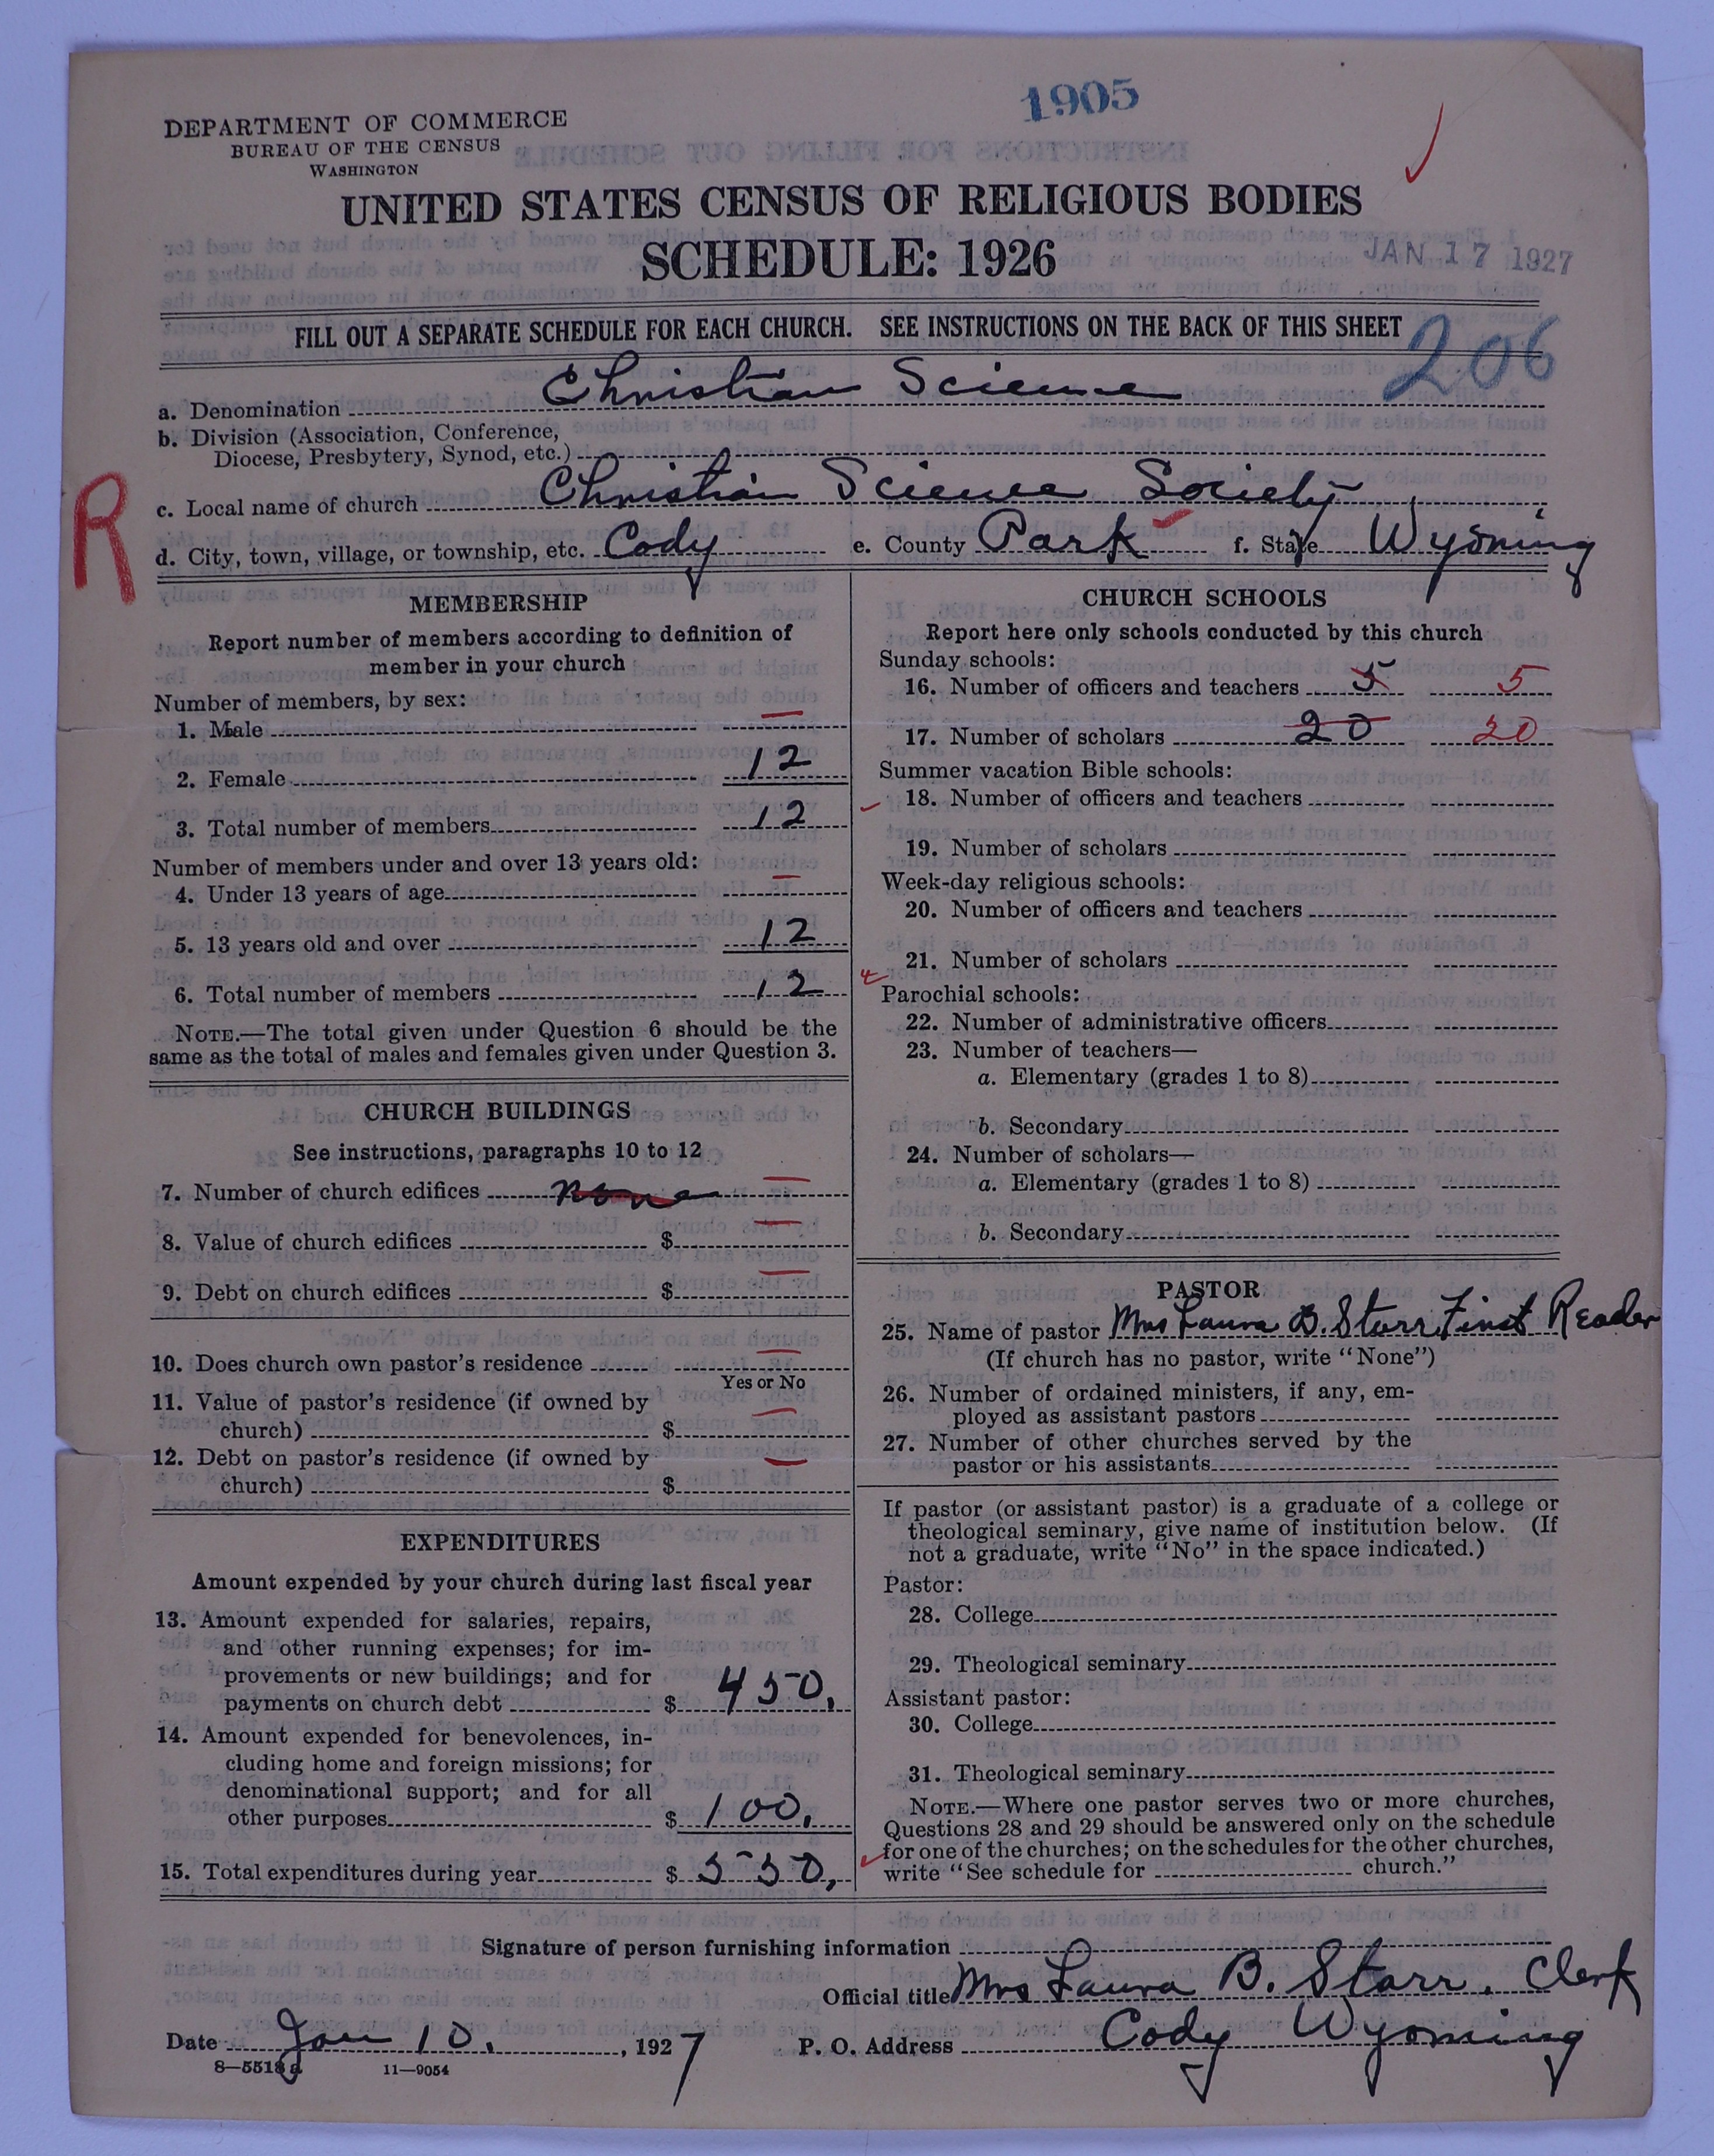 1905
DEPARTMENT OF COMMERCE
BUREAU OF THE CENSUS
WASHINGTON
UNITED STATES CENSUS OF RELIGIOUS BODIES
SCHEDULE: 1926
JAN 17 1927
FILL OUT A SEPARATE SCHEDULE FOR EACH CHURCH. SEE INSTRUCTIONS ON THE BACK OF THIS SHEET
206
a. Denomination Christian Science
b. Division (Association, Conference,
Diocese, Presbytery, Synod, etc.)
c. Local name of church Christian Science Society
R
d. City, town, village, or township, etc. Cody e. County Park f. State Wyoming
MEMBERSHIP
Report number of members according to definition of
member in your church
Number of members, by sex:
1. Male —
2. Female 12
3. Total number of members 12
Number of members under and over 13 years old:
4. Under 13 years of age —
5. 13 years old and over 12
6. Total number of members 12
NOTE.—The total given under Question 6 should be the
same as the total of males and females given under Question 3.
CHURCH BUILDINGS
See instructions, paragraphs 10 to 12
7. Number of church edifices none —
8. Value of church edifices $ —
9. Debt on church edifices $ —
10. Does church own pastor's residence —
Yes or No
11. Value of pastor's residence (if owned by
church) $ —
12. Debt on pastor's residence (if owned by
church) $ —
EXPENDITURES
Amount expended by your church during last fiscal year
13. Amount expended for salaries, repairs,
and other running expenses; for im-
provements or new buildings; and for
payments on church debt $ 450.
14. Amount expended for benevolences, in-
cluding home and foreign missions; for
denominational support; and for all
other purposes $ 100.
15. Total expenditures during year $ 550.
CHURCH SCHOOLS
Report here only schools conducted by this church
Sunday schools:
16. Number of officers and teachers 5 5
17. Number of scholars 20 20
Summer vacation Bible schools:
18. Number of officers and teachers
19. Number of scholars
Week-day religious schools:
20. Number of officers and teachers
21. Number of scholars
Parochial schools:
22. Number of administrative officers
23. Number of teachers—
a. Elementary (grades 1 to 8)
b. Secondary
24. Number of scholars—
a. Elementary (grades 1 to 8)
b. Secondary
PASTOR
25. Name of pastor Mrs Laura B. Starr First Reader
(If church has no pastor, write "None")
26. Number of ordained ministers, if any, em-
ployed as assistant pastors
27. Number of other churches served by the
pastor or his assistants
If pastor (or assistant pastor) is a graduate of a college or
theological seminary, give name of institution below. (If
not a graduate, write "No" in the space indicated.)
Pastor:
28. College
29. Theological seminary
Assistant pastor:
30. College
31. Theological seminary
NOTE.—Where one pastor serves two or more churches,
Questions 28 and 29 should be answered only on the schedule
for one of the churches; on the schedules for the other churches,
write "See schedule for church."
Signature of person furnishing information
Official title Mrs Laura B. Starr. Clerk
Date Jan 10. , 1927 P. O. Address Cody Wyoming
8—5518a 11—9054